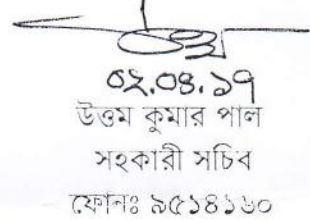 ০২.০৪.১৭
উত্তম কুমার পাল
সহকারী সচিব
ফোনঃ ৯৫১৪১৬০